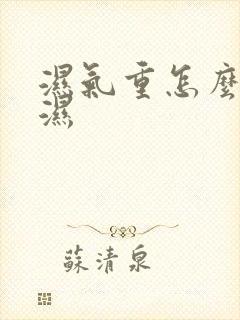 濕氣重怎麼
濕
蘇清泉